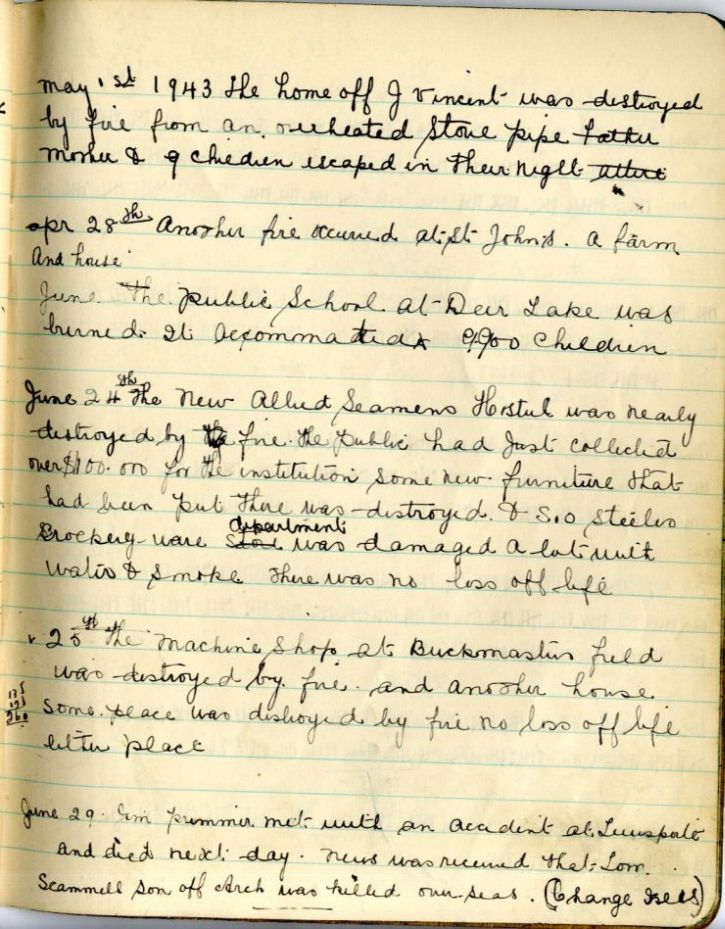 May 1st 1943 The home off J Vincent was destroyed
by fire from an overheated Stove pipe Father
Mother & 9 Children escaped in Their night attire
apr 28th Another fire occured at St John's. A farm
And house
June. The public School at Deer Lake was
burned. It accommated 900 Children
June 24th The New Allied Seamens Hostel was nearly
destroyed by fire. The public had Just collected
over $100.000 for the institution some new furniture that
had been put There was destroyed. & S.O Steeles
Crockery ware department
Store was damaged a lot with
water & smoke There was no loss off life
25th The Machine Shop at Buckmasters field
was destroyed by fire. and another house
some place was destroyed by fire no loss off life
either place
175
121
260
June 29. met with an accident at Lewisporte
And died next day. News was received that Tom.
Scammell son off Arch was killed over-seas. (Change Isles)